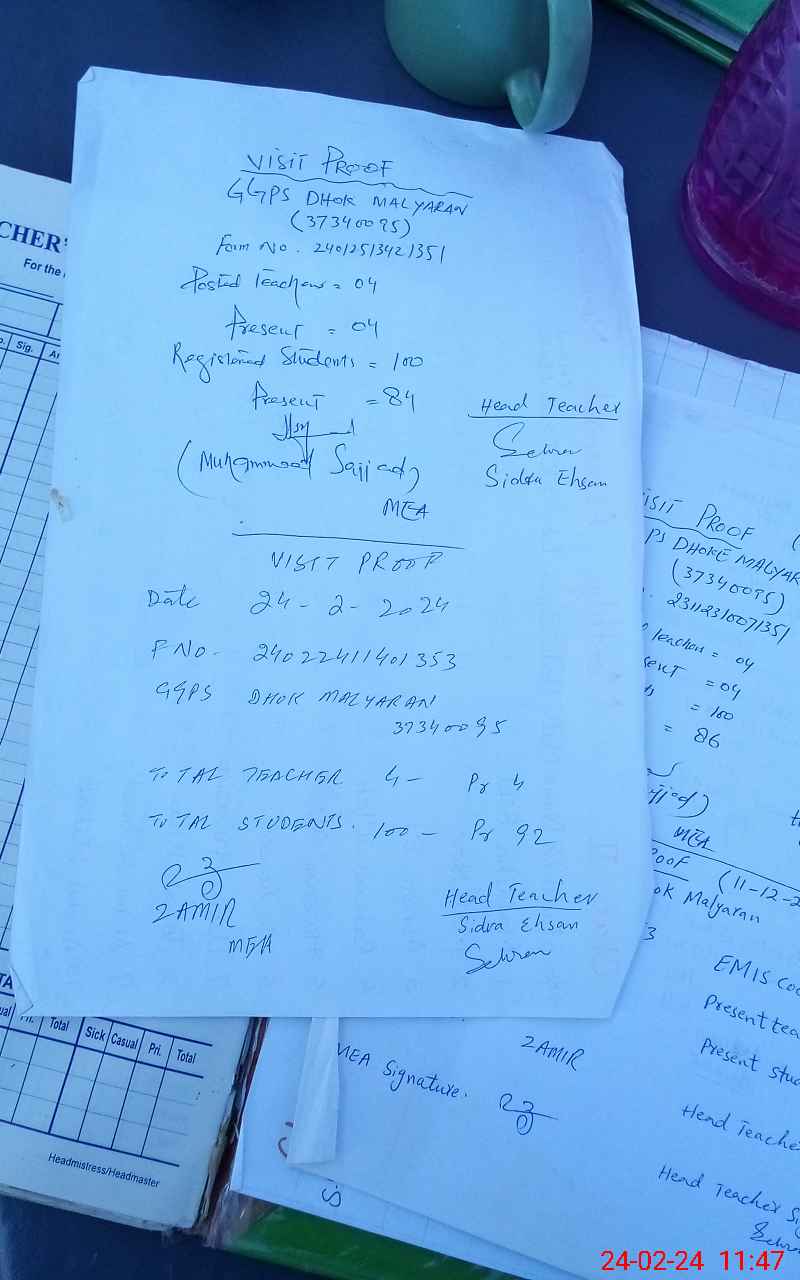 VISIT PROOF
GGPS DHOK MALYARAN
(37340095)
Form No. 24012513421351
Posted Teachers = 04
Present = 04
Registered Students = 100
Present = 84
(Muhammad Sajjad)
MEA
Head Teacher
Sidra Ehsan
VISIT PROOF
Date 24-2-2024
F No- 24022411401353
GGPS DHOK MALYARAN
37340095
TOTAL TEACHER 4- Pr 4
TOTAL STUDENTS. 100- Pr 92
ZAMIR
MEA
Head Teacher
Sidra Ehsan
CHER'
For the
Sig.
TA
Total
Sick
Casual
Pri.
Total
Headmistress/Headmaster
ISIT PROOF (
PS DHOKE MALYAR
(37340095)
. 23112310071351
teachers = 04
sent = 04
= 100
= 86
jjad)
MEA
ROOF (11-12-2
ok Malyaran
3
EMIS Cod
Present tea
Present stud
ZAMIR
MEA Signature.
Head Teacher
Head Teacher Si
24-02-24 11:47